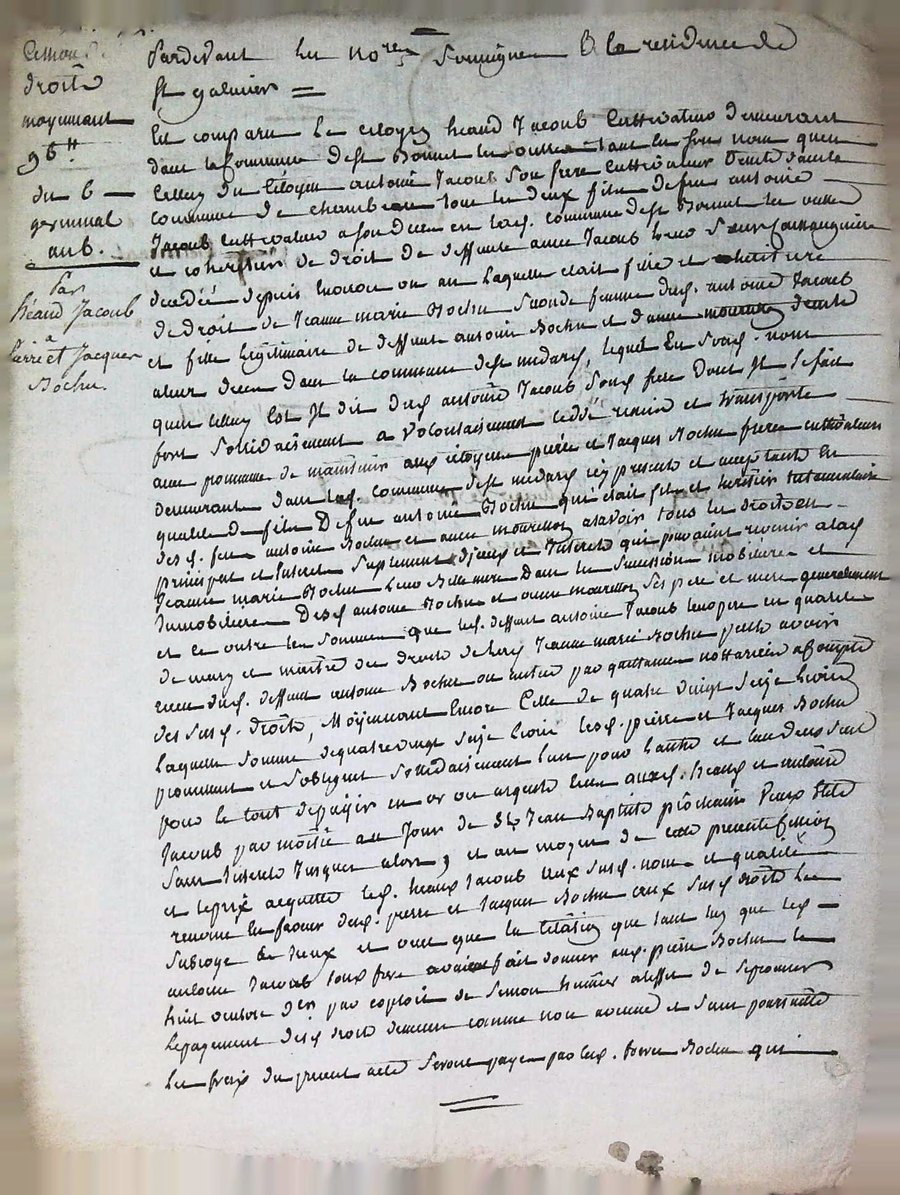 droits
moyennant
96 ₶
du 6
germinal
an 6.
Par
Béaud Jacoub
a
Pierre et Jacques
Bochu.
Pardevant les no.res Soussignes à la residence de
st galmier
Est comparu le citoyen beaud Jacoub Cultivateur demeurant
dans la commune de st Bonnet les oulles tant en son nom que
Celluy du Citoyen antoine Jacoub Son frere Cultivateur
Commune de chambeon tous les deux fils de feu antoine
Jacoub Cultivateur a son deces en lad. commune de st Bonnet les oulles
et coheritiers de droit de deffunte anne Jacoub leur Soeur
decedée depuis laquelle etait fille et heritiere
de droit de Jeanne marie Bochu Seconde femme dud. antoine Jacoub
et fille legitimaire de deffunts antoine Bochu et d'anne
a leur deces dans la commune de st medard, lequel en Sesd. noms
que celluy est Jl dit dud. antoine Jacoub Sond. frere dont Jl Se fait
fort Sollidairement a volontairement ceddé remis et transporté
avec promesse de maintenir aux citoyens pierre et Jacques Bochu freres cultivateurs
demeurant dans lad. commune de st medard icy presents et acceptants en
qualité de fils de feu antoine Bochu qui était fils et heritier testamentaire
dud. feu antoine Bochu et anne asavoir tous les droits en
principal et Interets Suplement d'jceux et Interets qui pouvaint revenir a lad.
Jeanne marie Bochu leur Belle mere dans les Successions mobiliere et
Immobiliere desd. antoine Bochu et anne Ses pere et mere generalement
et ce outre les Sommes que led. deffunt antoine Jacoub leur pere en qualité
de mary et maitre des droits de lad. Jeanne marie Bochu peut avoir
recu dud. deffunt antoine Bochu ou autre par quittances nottariées a compte
des susd. droits, Moyennant Encore Celle de quatre vingt Seize livres
Laquelle Somme de quatre vingt Seize livres lesd. pierre et Jacques Bochu
promettent et S'obligent Sollidairement l'un pour l'autre et l'un deux Seul
pour le tout de payer en or ou argent auxd. beaud et antoine
Jacoub par moitié au Jour de St Jean Baptiste prochain vieux Stile
Sans Interets Jusques alors, et au moyen de cette presente
et le prix acquitté led. beaud Jacoub aux Susd. noms et qualité
renonce en faveur desd. pierre et Jacques Bochu aux Susd. droits les
Subroge En Jceux et veut que la Citation que tant luy que led.
antoine Jacoub Sond. frere avaient fait donner aud. pierre Bochu le
huit octobre par exploit de Simon huissier aleffet de
le payement desd. droits demeure comme non avenue et Sans poursuitte
Les fraix du present acte Seront payé par lesd. freres Bochu qui